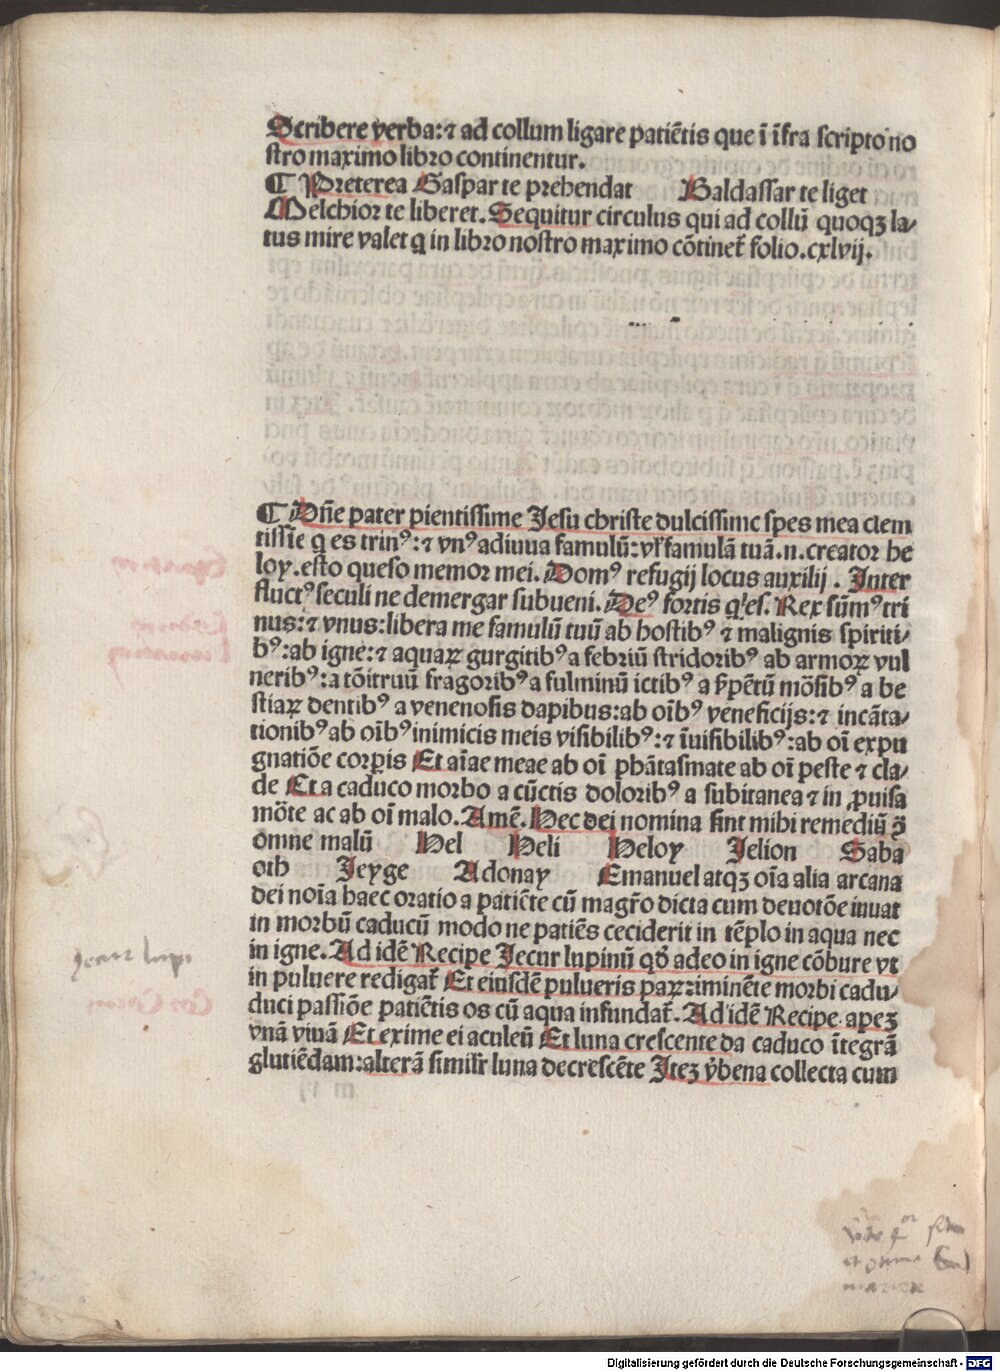 Scribere verba:⁊ ad collum ligare patiētis que ī īfra scripto no
stro maximo libro continentur.
¶ Preterea Gaspar te prehendat Baldassar te liget
Melchior te liberet. Sequitur circulus qui ad collū quoqꝫ la⸗
tus mire valet q̄ in libro nostro maximo cōtinet̄ folio.cxlvij.
¶ Dn̄e pater pientissime Jesu christe dulcissime spes mea clem
tissīe q es trinꝰ:⁊ vnꝰ adiuua famulū:vl̓ famulā tuā.n.creator he
loy.esto queso memor mei. Domꝰ refugij locus auxilij. Inter
fluctꝰ seculi ne demergar subueni. Deꝰ fortis qͥ es. Rex sūmꝰ tri
nus:⁊ vnus:libera me famulū tuū ab hostibꝰ ⁊ malignis spiriti⸗
bꝰ:ab igne:⁊ aquaꝝ gurgitibꝰ a febriū stridoribꝰ ab armoꝝ vul
neribꝰ:a tōitruū fragoribꝰ a fulminū ictibꝰ a s̓pētū mōsibꝰ a be
stiaꝝ dentibꝰ a venenosis dapibus:ab oībꝰ veneficijs:⁊ incāta⸗
tionibꝰ ab oībꝰ inimicis meis visibilibꝰ:⁊ īuisibilibꝰ:ab oī expu
gnatiōe corꝑis Et aīae meae ab oī phātasmate ab oī peste ⁊ cla⸗
de Et a caduco morbo a cūctis doloribꝰ a subitanea ⁊ in ꝓuisa
mōte ac ab oī malo. Amē. Hec dei nomina sint mihi remediū ↄ̄
omne malū Hel Heli Heloy Jelion Saba
oth Jeyge Adonay Emanuel atqꝫ oīa alia arcana
dei noīa haec oratio a patiēte cū magr̄o dicta cum deuotōe iuuat
in morbū caducū modo ne patiēs ceciderit in tēplo in aqua nec
in igne. Ad idē Recipe Jecur lupinū qd̓ adeo in igne cōbure vt
in puluere redigat̄ Et eiusdē pulueris paꝝ ꝫiminēte morbi cadu⸗
duci passiōe patiētis os cū aqua infundat̄. Ad idē Recipe. apeꝫ
vnā viuā Et exime ei aculeū Et luna crescente da caduco ītegrā
glutiēdam:alterā simil̓r luna decrescēte Iteꝫ v̓bena collecta cum
Jecur lupi
Digitalisierung gefördert durch die Deutsche Forschungsgemeinschaft - DFG